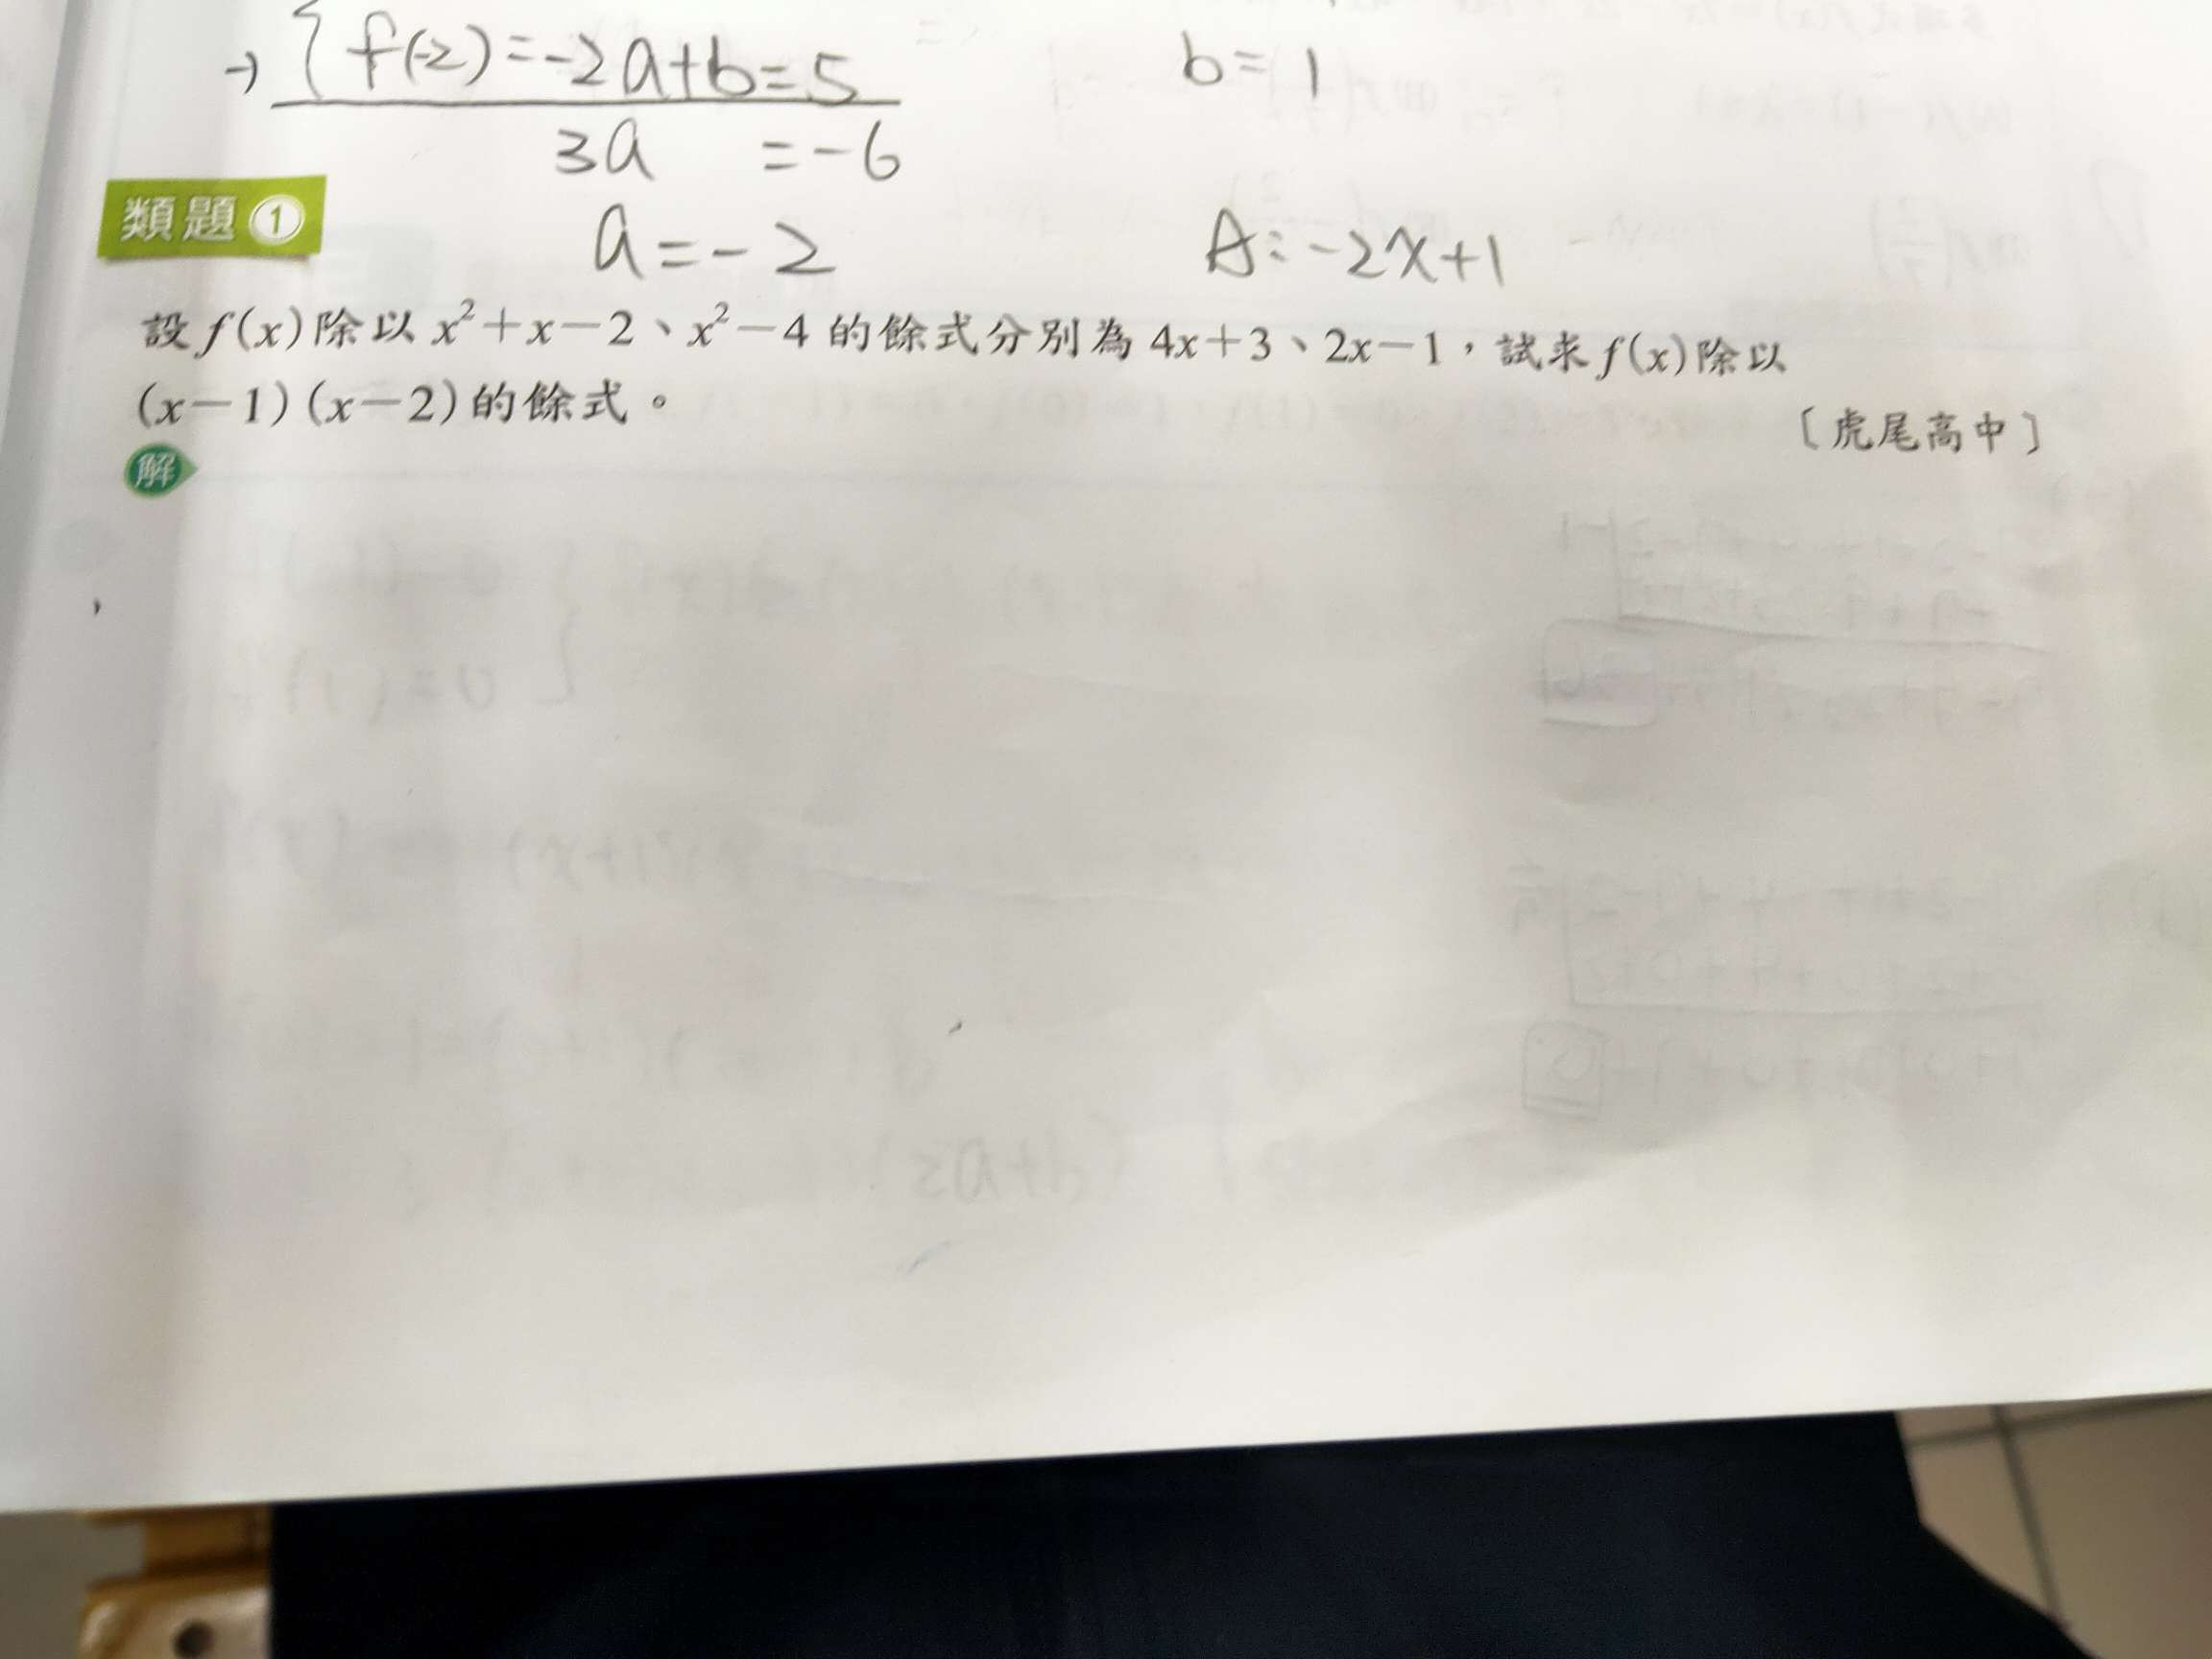 → { f(-2)=-2a+b=5
b=1
3a =-6
類題①
a=-2
A:-2x+1
設 f(x) 除以 x²+x-2、x²-4 的餘式分別為 4x+3、2x-1，試求 f(x) 除以
(x-1)(x-2) 的餘式。
〔虎尾高中〕
解